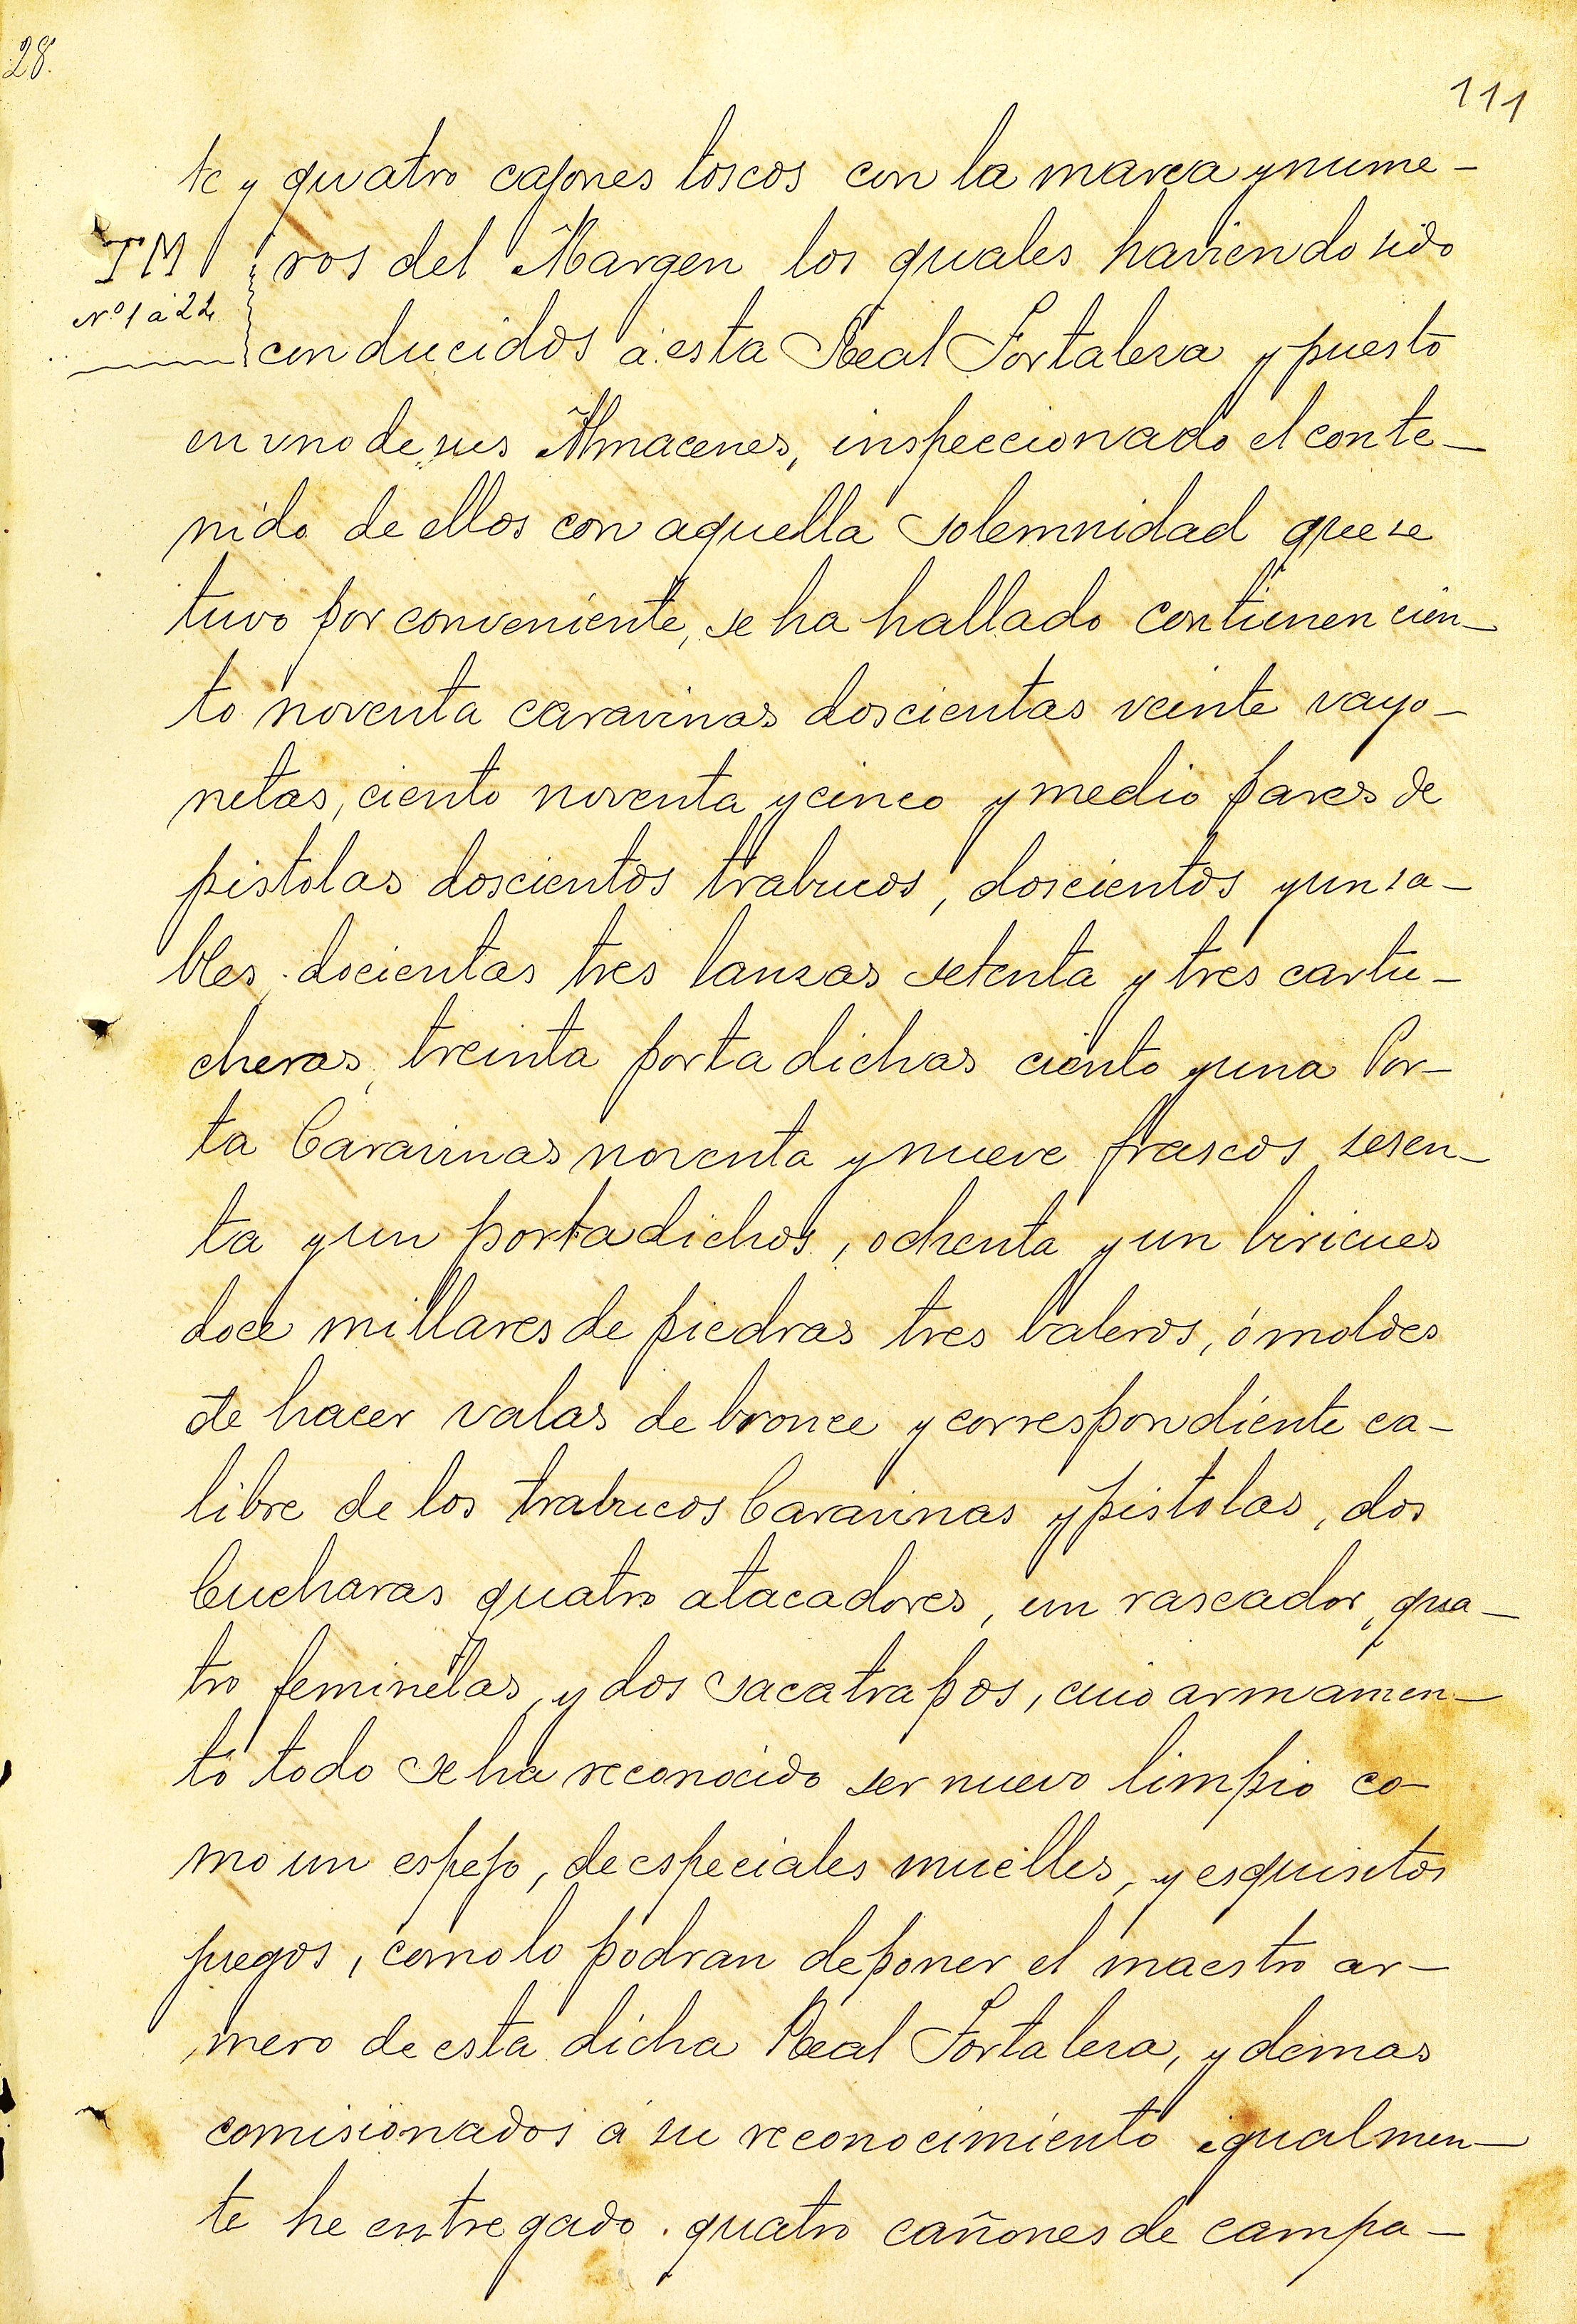 28.
111
te y quatro cajones toscos con la marca y nume-
IM
ros del Margen los quales haviendo sido
Nº 1 a 24
conducidos á esta Real Fortalesa y puesto
en uno de sus Almacenes, inspeccionado el conte-
nido de ellos con aquella solemnidad que se
tuvo por conveniente, se ha hallado contienen cien-
to noventa caravinas doscientas veinte vayo-
netas, ciento noventa y cinco y medio pares de
pistolas doscientos trabucos, doscientos y un sa-
bles, docientas tres lanzas setenta y tres cartu-
cheras, treinta porta dichas ciento y una Por-
ta Caravinas noventa y nueve frascos sesen-
ta y un porta dichos, ochenta y un biricues
doce millares de piedras tres baleros, ó moldes
de hacer valas de bronce y correspondiente ca-
libre de los trabucos Caravinas y pistolas, dos
Cucharas quatro atacadores, un rascador, qua-
tro feminelas, y dos sacatrapos, cuio armamen-
to todo se ha reconocido ser nuevo limpio co-
mo un espejo, de especiales muelles, y esquisitos
juegos, como lo podran deponer el maestro ar-
mero de esta dicha Real Fortalesa, y demas
comisionados á su reconocimiento igualmen-
te he entregado quatro cañones de campa-